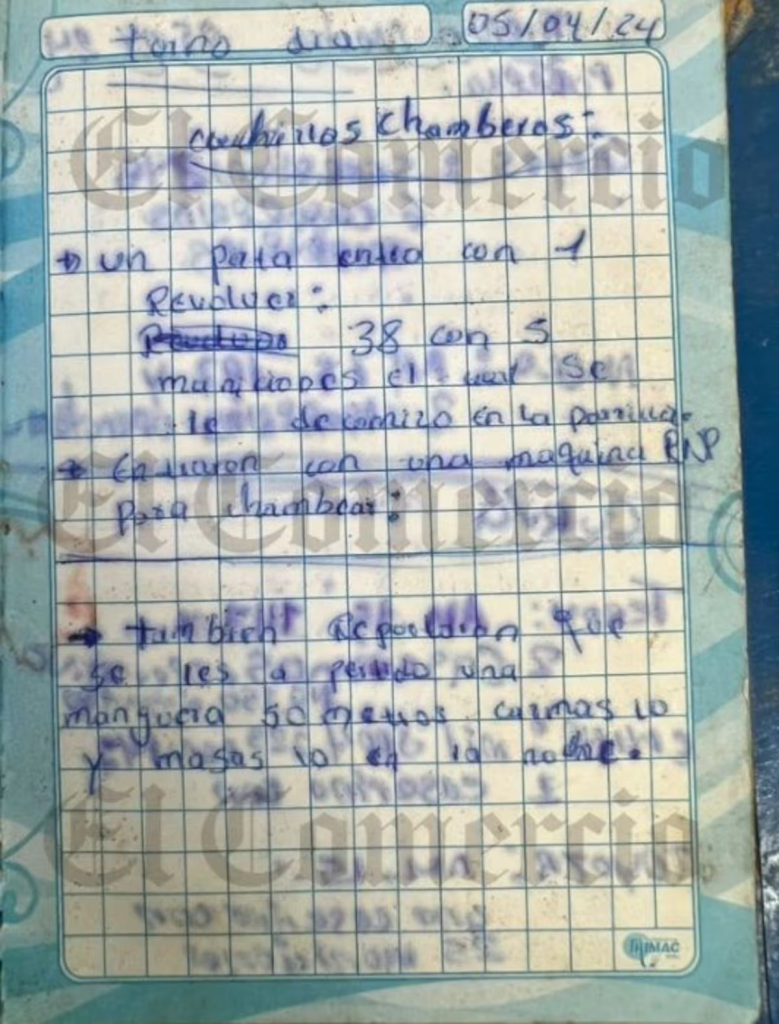 turno dia
05/04/24
cuchillos chamberos:
→ un pata entro con 1
Revolver:
38 con 5
municiones el cual se
le decomizo en la parrilla.
→ Entraron con una maquina PNP
para chambear:
→ tambien Reportaron que
se les a perdido una
manguera 50 metros. cuñas 10
y masas 10 en la noche.
El Comercio
El Comercio
El Comercio
TRIMAC